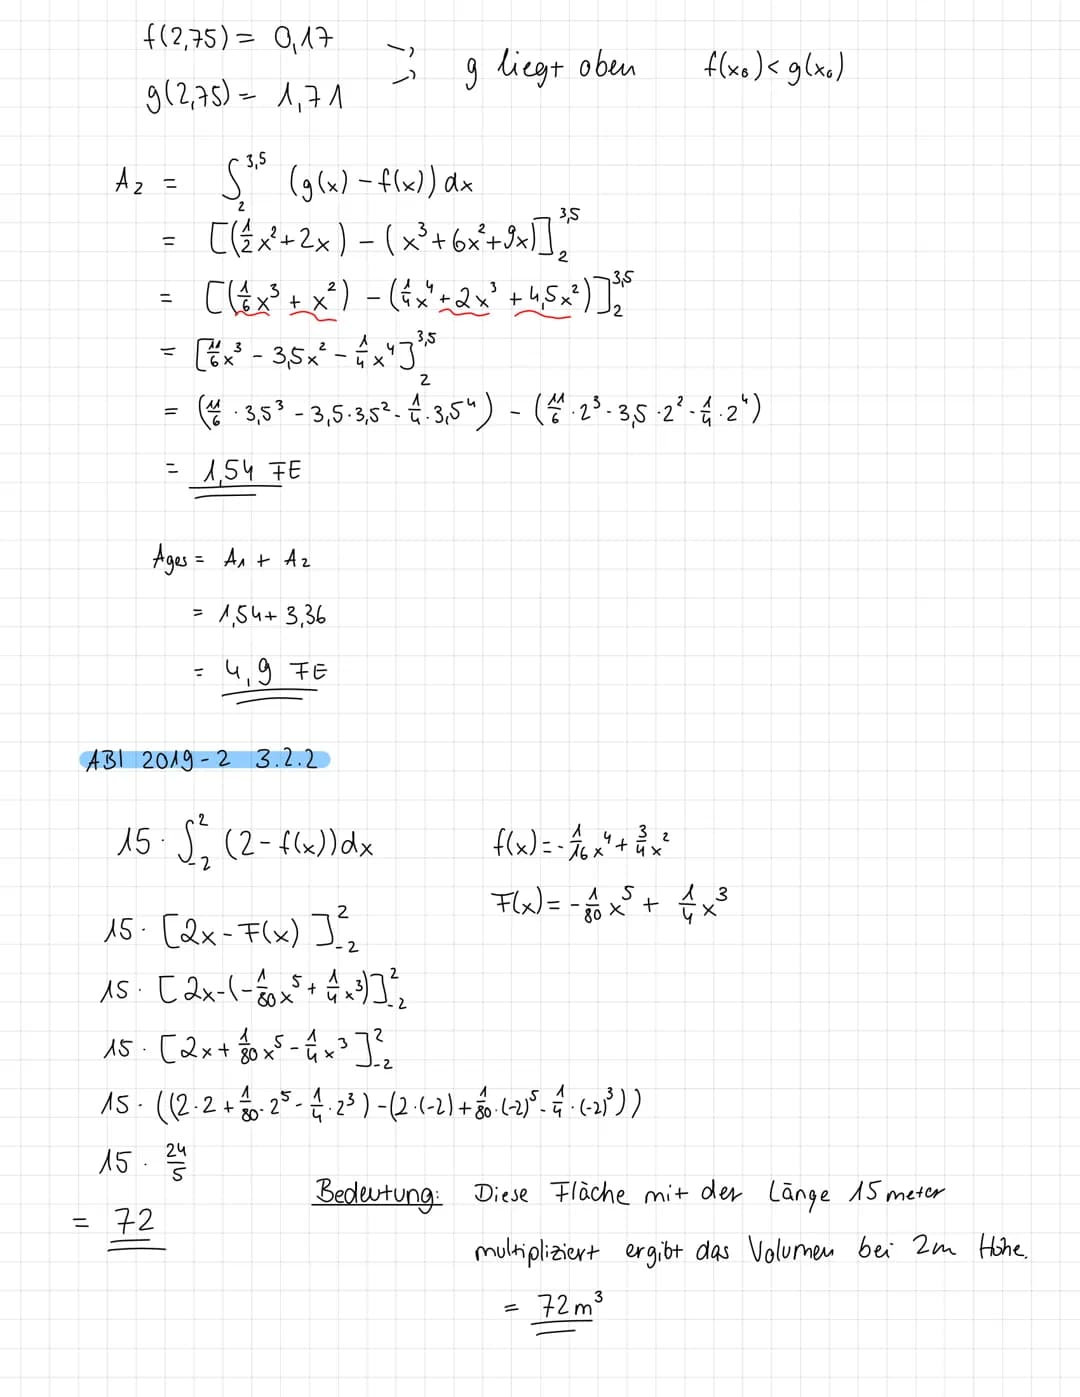 f(2,75) = 0,17
g(2,75) = 1,71
g liegt oben f(x₀) < g(x₀)
A₂ = ∫₂^3,5 (g(x) - f(x)) dx
= [(½x² + 2x) - (x³ + 6x² + 9x)]₂^3,5
= [(1/6 x³ + x²) - (1/4 x⁴ + 2x³ + 4,5x²)]₂^3,5
= [11/6 x³ - 3,5x² - 1/4 x⁴]₂^3,5
= (11/6 · 3,5³ - 3,5 · 3,5² - 1/4 · 3,5⁴) - (11/6 · 2³ - 3,5 · 2² - 1/4 · 2⁴)
= 1,54 FE
Ages = A₁ + A₂
= 1,54 + 3,36
= 4,9 FE
ABI 2019-2 3.2.2
15 · ∫₋₂² (2 - f(x)) dx f(x) = -1/16 x⁴ + 3/4 x²
F(x) = -1/80 x⁵ + 1/4 x³
15 · [2x - F(x)]₋₂²
15 · [2x - (-1/80 x⁵ + 1/4 x³)]₋₂²
15 · [2x + 1/80 x⁵ - 1/4 x³]₋₂²
15 · ((2·2 + 1/80 · 2⁵ - 1/4 · 2³) - (2·(-2) + 1/80 · (-2)⁵ - 1/4 · (-2)³))
15 · 24/5
= 72
Bedeutung: Diese Fläche mit der Länge 15 meter
multipliziert ergibt das Volumen bei 2m Höhe.
= 72 m³